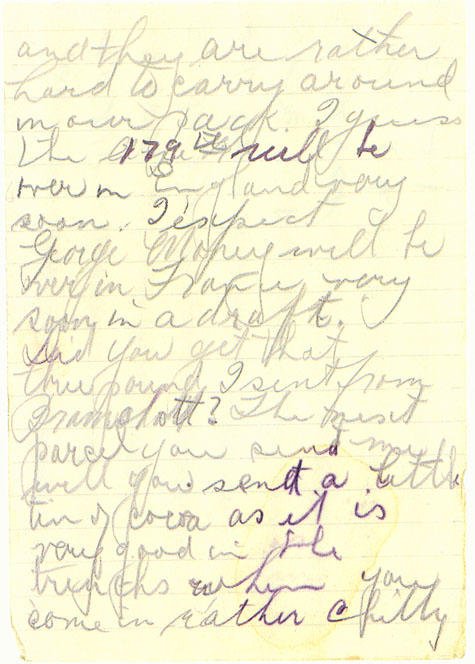 and they are rather
hard to carry around
in our pack. I guess
the 179th will be
over in England very
soon. I expect
George Money will be
over in France very
soon in a draft.
Did you get that
three pound I sent from
Bramshott? The next
parcel you send me
will you send a little
tin of cocoa as it is
very good in the
trenchs when you
come in rather chilly